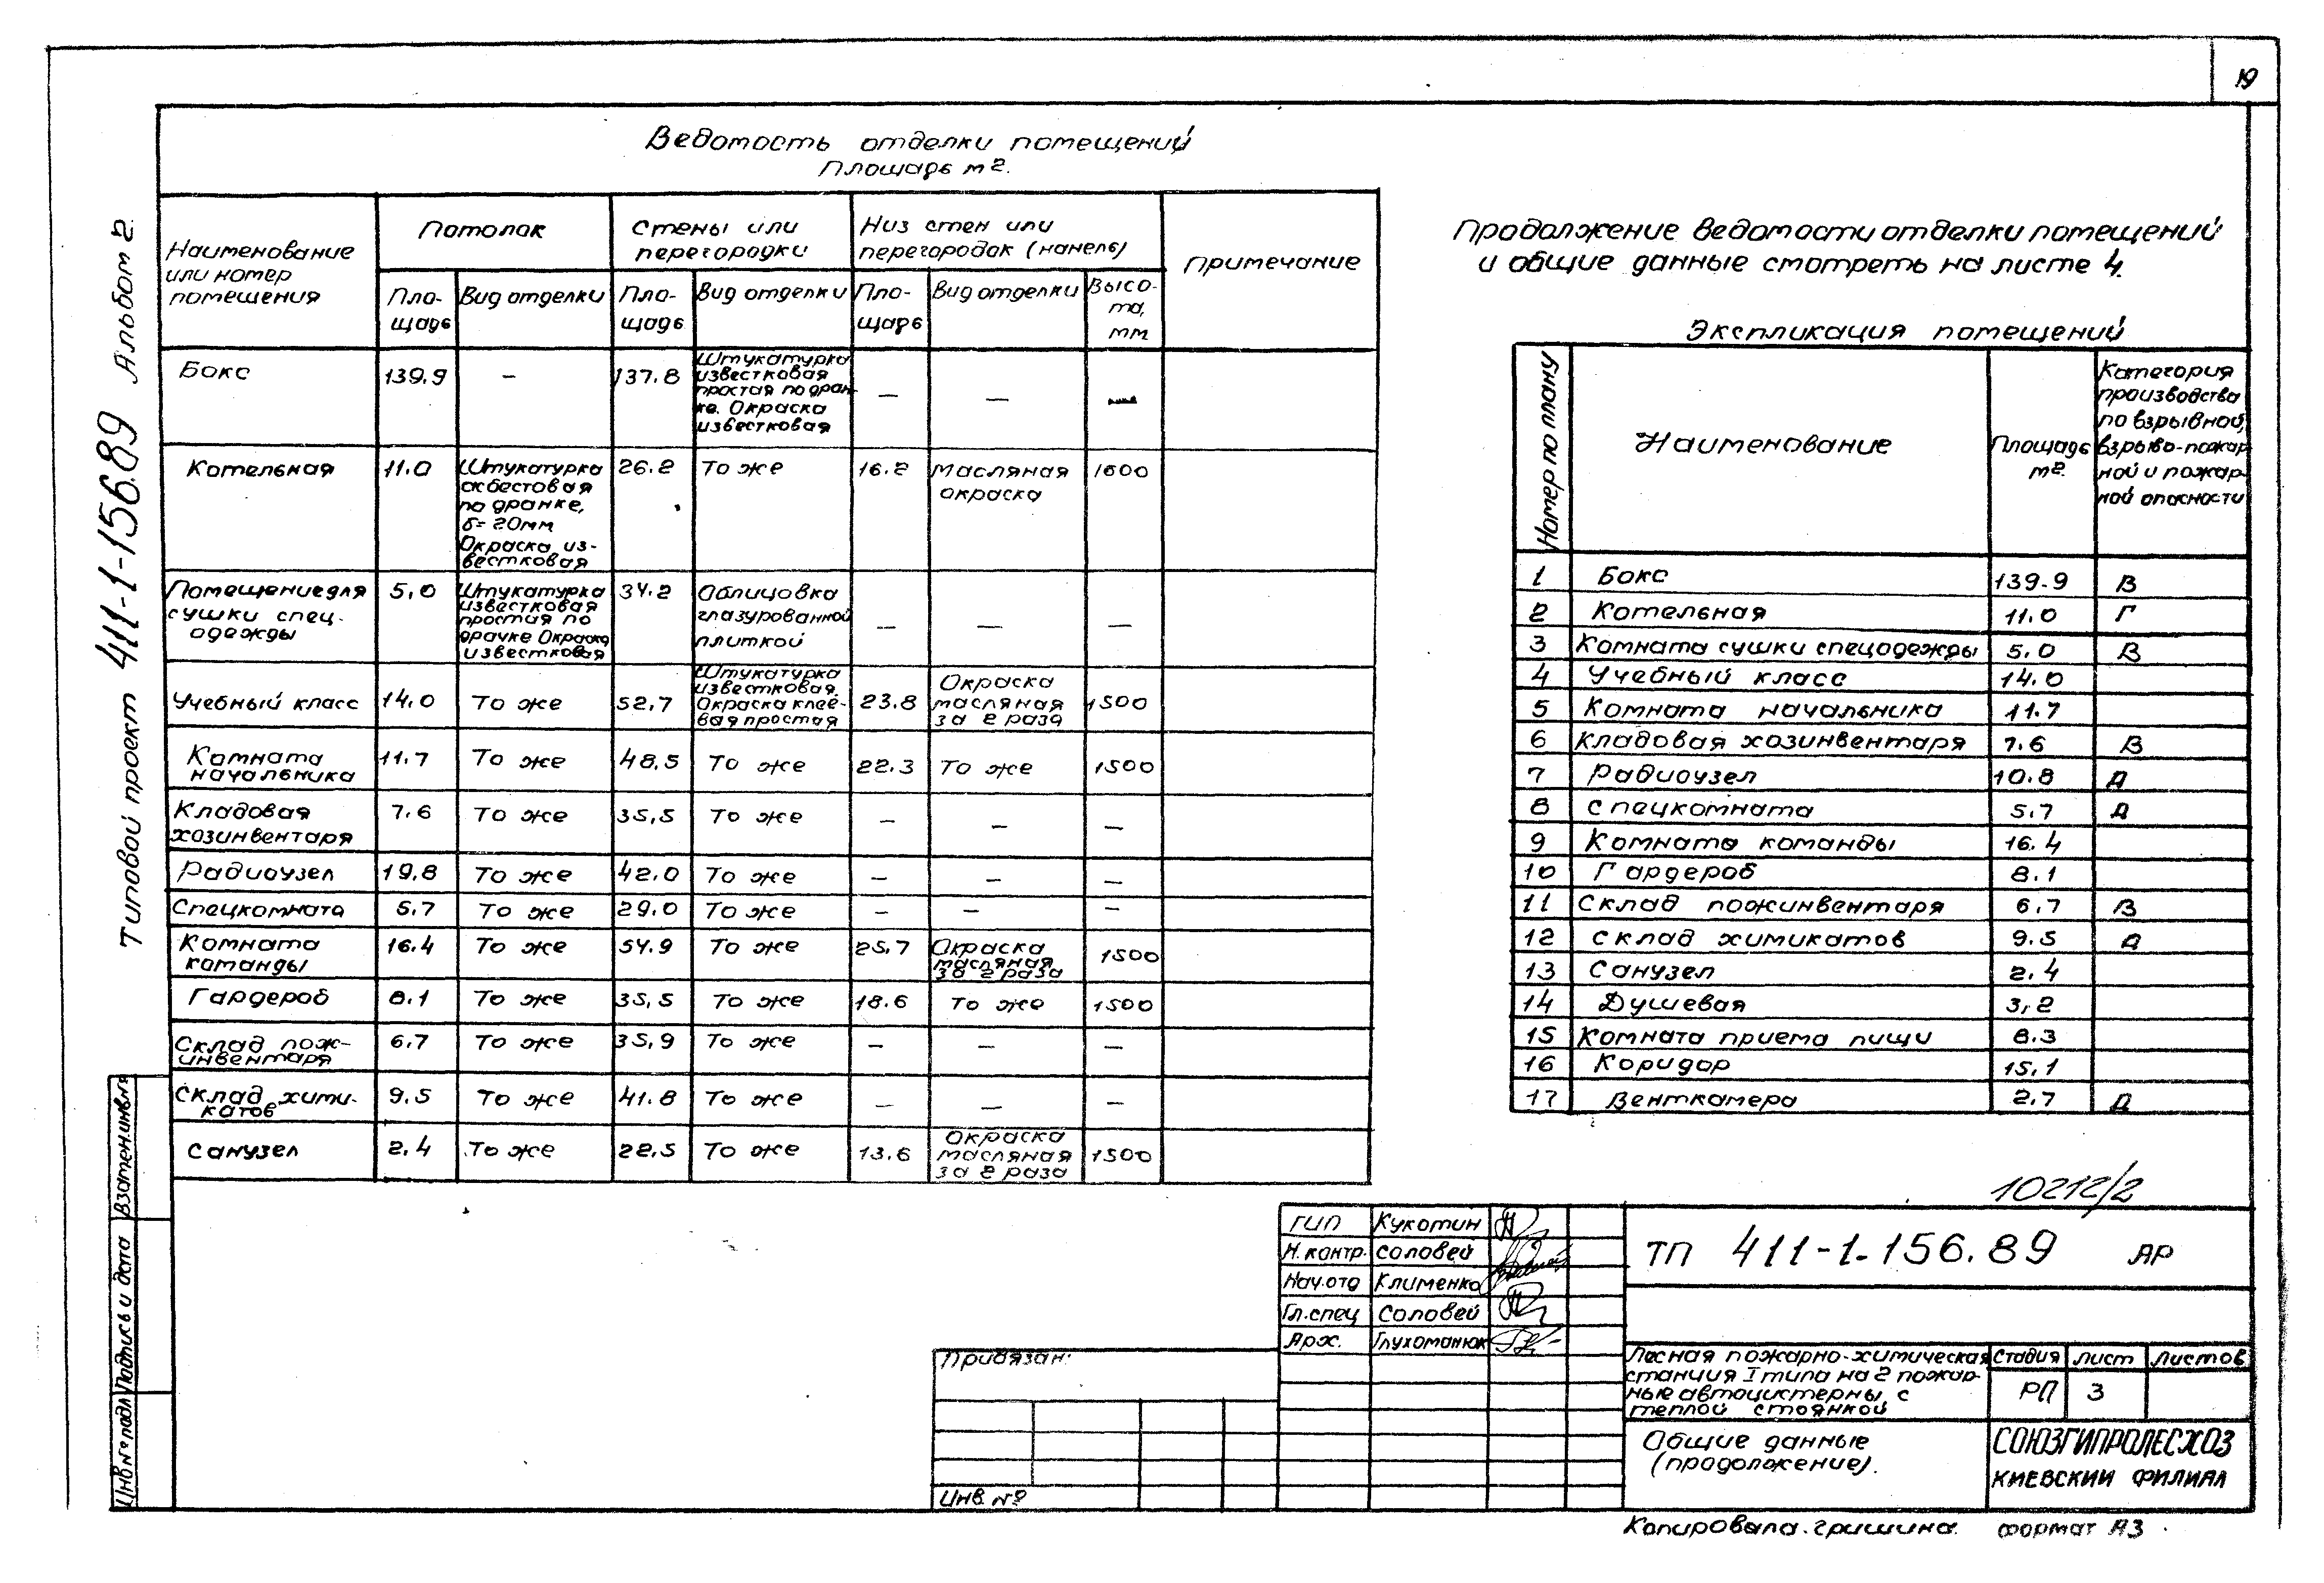 19
Типовой проект 411-1-156.89 Альбом 2.
Ведомость отделки помещений
Площадь м2.
Наименование или номер помещения
Потолок
Стены или перегородки
Низ стен или перегородок (панель)
Примечание
Площадь Вид отделки Площадь Вид отделки Площадь Вид отделки Высота, мм
Бокс 139.9 – 137.8 Штукатурка известковая простая по дранке. Окраска известковая – –
Котельная 11.0 Штукатурка асбестовая по дранке, б=20мм Окраска известковая 26.2 То же 16.2 Масляная окраска 1600
Помещение для сушки спецодежды 5,0 Штукатурка известковая простая по дранке Окраска известковая 34.2 Облицовка глазурованной плиткой – – –
Учебный класс 14.0 То же 52,7 Штукатурка известковая. Окраска клеевая простая 23.8 Окраска масляная за 2 раза 1500
Комната начальника 11.7 То же 48,5 То же 22.3 То же 1500
Кладовая хозинвентаря 7.6 То же 35,5 То же – – –
Радиоузел 19.8 То же 42.0 То же – – –
Спецкомната 5.7 То же 29.0 То же – – –
Комната команды 16.4 То же 54.9 То же 25,7 Окраска масляная за 2 раза 1500
Гардероб 8.1 То же 35,5 То же 18.6 То же 1500
Склад пожинвентаря 6.7 То же 35,9 То же – – –
Склад химикатов 9.5 То же 41.8 То же – – –
Санузел 2.4 То же 22.5 То же 13.6 Окраска масляная за 2 раза 1500
Продолжение ведомости отделки помещений
и общие данные смотреть на листе 4.
Экспликация помещений
Номер по плану
Наименование
Площадь м2.
Категория производства по взрывной, взрыво-пожарной и пожарной опасности
1 Бокс 139.9 В
2 Котельная 11.0 Г
3 Комната сушки спецодежды 5.0 В
4 Учебный класс 14.0
5 Комната начальника 11.7
6 Кладовая хозинвентаря 7.6 В
7 Радиоузел 10.8 Д
8 Спецкомната 5.7 Д
9 Комната команды 16.4
10 Гардероб 8.1
11 Склад пожинвентаря 6.7 В
12 Склад химикатов 9.5 Д
13 Санузел 2.4
14 Душевая 3,2
15 Комната приема пищи 8.3
16 Коридор 15,1
17 Венткамера 2.7 Д
10212/2
ГИП Кукотин
Н.контр. Соловей
Нач.отд Клименко
Гл.спец Соловей
Арх. Глухоманюк
ТП 411-1-156.89 АР
Лесная пожарно-химическая
станция I типа на 2 пожар-
ные автоцистерны, с
теплой стоянкой
Стадия Лист Листов
РП 3
Общие данные
(продолжение).
СОЮЗГИПРОЛЕСХОЗ
КИЕВСКИЙ ФИЛИАЛ
Привязан:
Инв. №
Взамен.инв.№
Подпись и дата
Инв № подл
Копировала. Гришина. формат А3